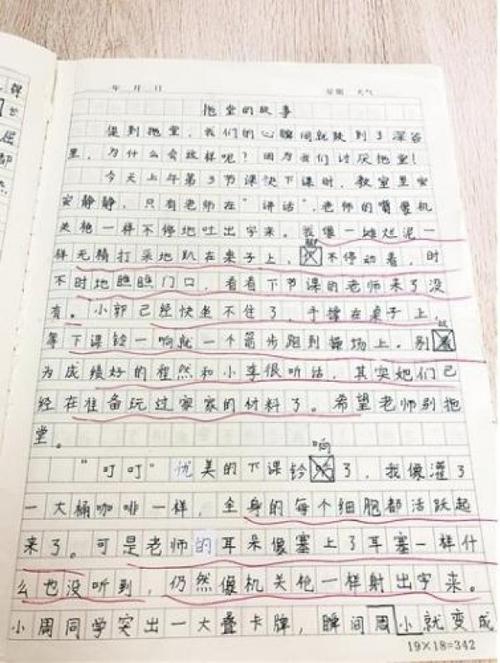 年 月 日 星期 天气
拖堂的故事
提到拖堂，我们的心瞬间就跌到了深谷
里，为什么会这样呢？因为我们讨厌拖堂！
今天上午第3节课快下课时，教室里安
安静静，只有老师在“讲话”，老师的嘴里机
关枪一样不停地吐出字来。我像一摊烂泥一
样无精打采地趴在桌子上，不停动着，时
不时地瞧瞧门口，看看下节课的老师来了没
有。小郭已经快坐不住了，手撑在桌子上，
等下课铃一响就一个箭步跑到操场上。别以
为成绩好的程然和小李很听话，其实她们已
经在准备玩过家家的材料了。希望老师别拖
堂。
响
“叮叮”优美的下课铃了，我像灌了
一大桶咖啡一样，全身的每个细胞都活跃起
来了。可是老师的耳朵像塞上了耳塞一样什
么也没听到，仍然像机关枪一样射出字来。
小周同学突出一大叠卡牌，瞬间周小就变成
19×18=342